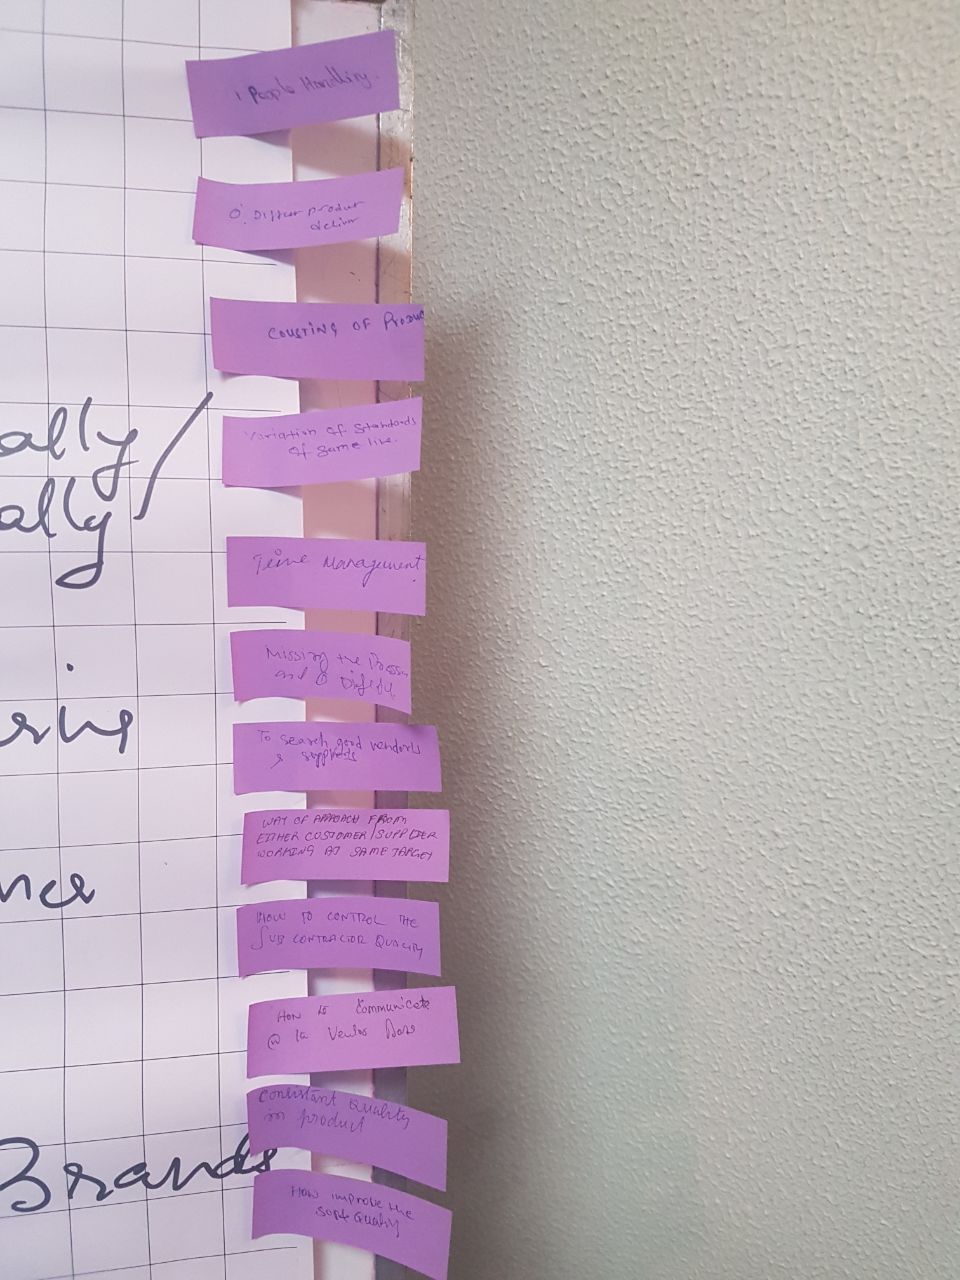 1 People Handling.
Differ produr
deliver
COUSTING OF Produc
Variation of Standards
of same line.
Time Management.
Missing the
and
To search good vendorls
& suppliers
WAY OF APPROACH FROM
EITHER CUSTOMER/SUPPLIER
WORKING AT SAME TARGET
HOW TO CONTROL THE
SUB CONTRACTOR QUALITY
HOW to Communicate
@ la
Consistant Quality
in product
How improve the
Quality
ally/
ally
Brands